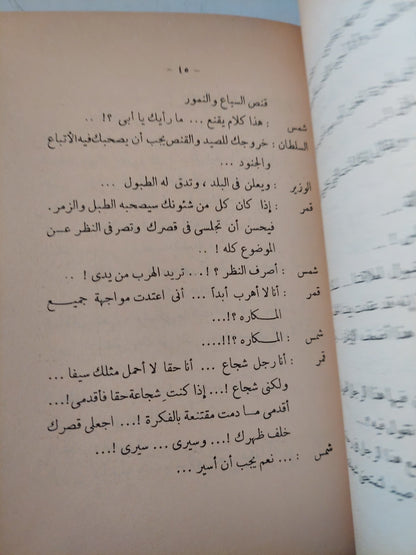 - ١٥ -
قنص السباع والنمور
شمس : هذا كلام يقنع ... ما رأيك يا أبى ؟! ..
السلطان : خروجك للصيد والقنص يجب أن يصحبك فيه الأتباع
والجنود ...
الوزير : ويعلن فى البلد ، وتدق له الطبول ...
قمر : إذا كان كل من شئونك سيصحبه الطبل والزمر .
فيحسن أن تجلسى فى قصرك ونصرفى النظر عن
الموضوع كله ! ..
شمس : أصرف النظر ؟! ... تريد الهرب من يدى ! ..
قمر : أنا لا أهرب أبدأ ... أنى اعتدت مواجهة جميع
المكاره ؟! ...
شمس : المكاره ؟!! ....
قمر : أنا رجل شجاع ... أنا حقا لا أحمل مثلك سيفا ...
ولكنى شجاع ! ... إذا كنت شجاعة حقا فأقدمى ! ...
أقدمى ما دمت مقتنعة بالفكرة ! ... اجعلى قصرك
خلف ظهرك ! ... وسيرى ... سيرى ! ...
شمس : ... نعم يجب أن أسير ...